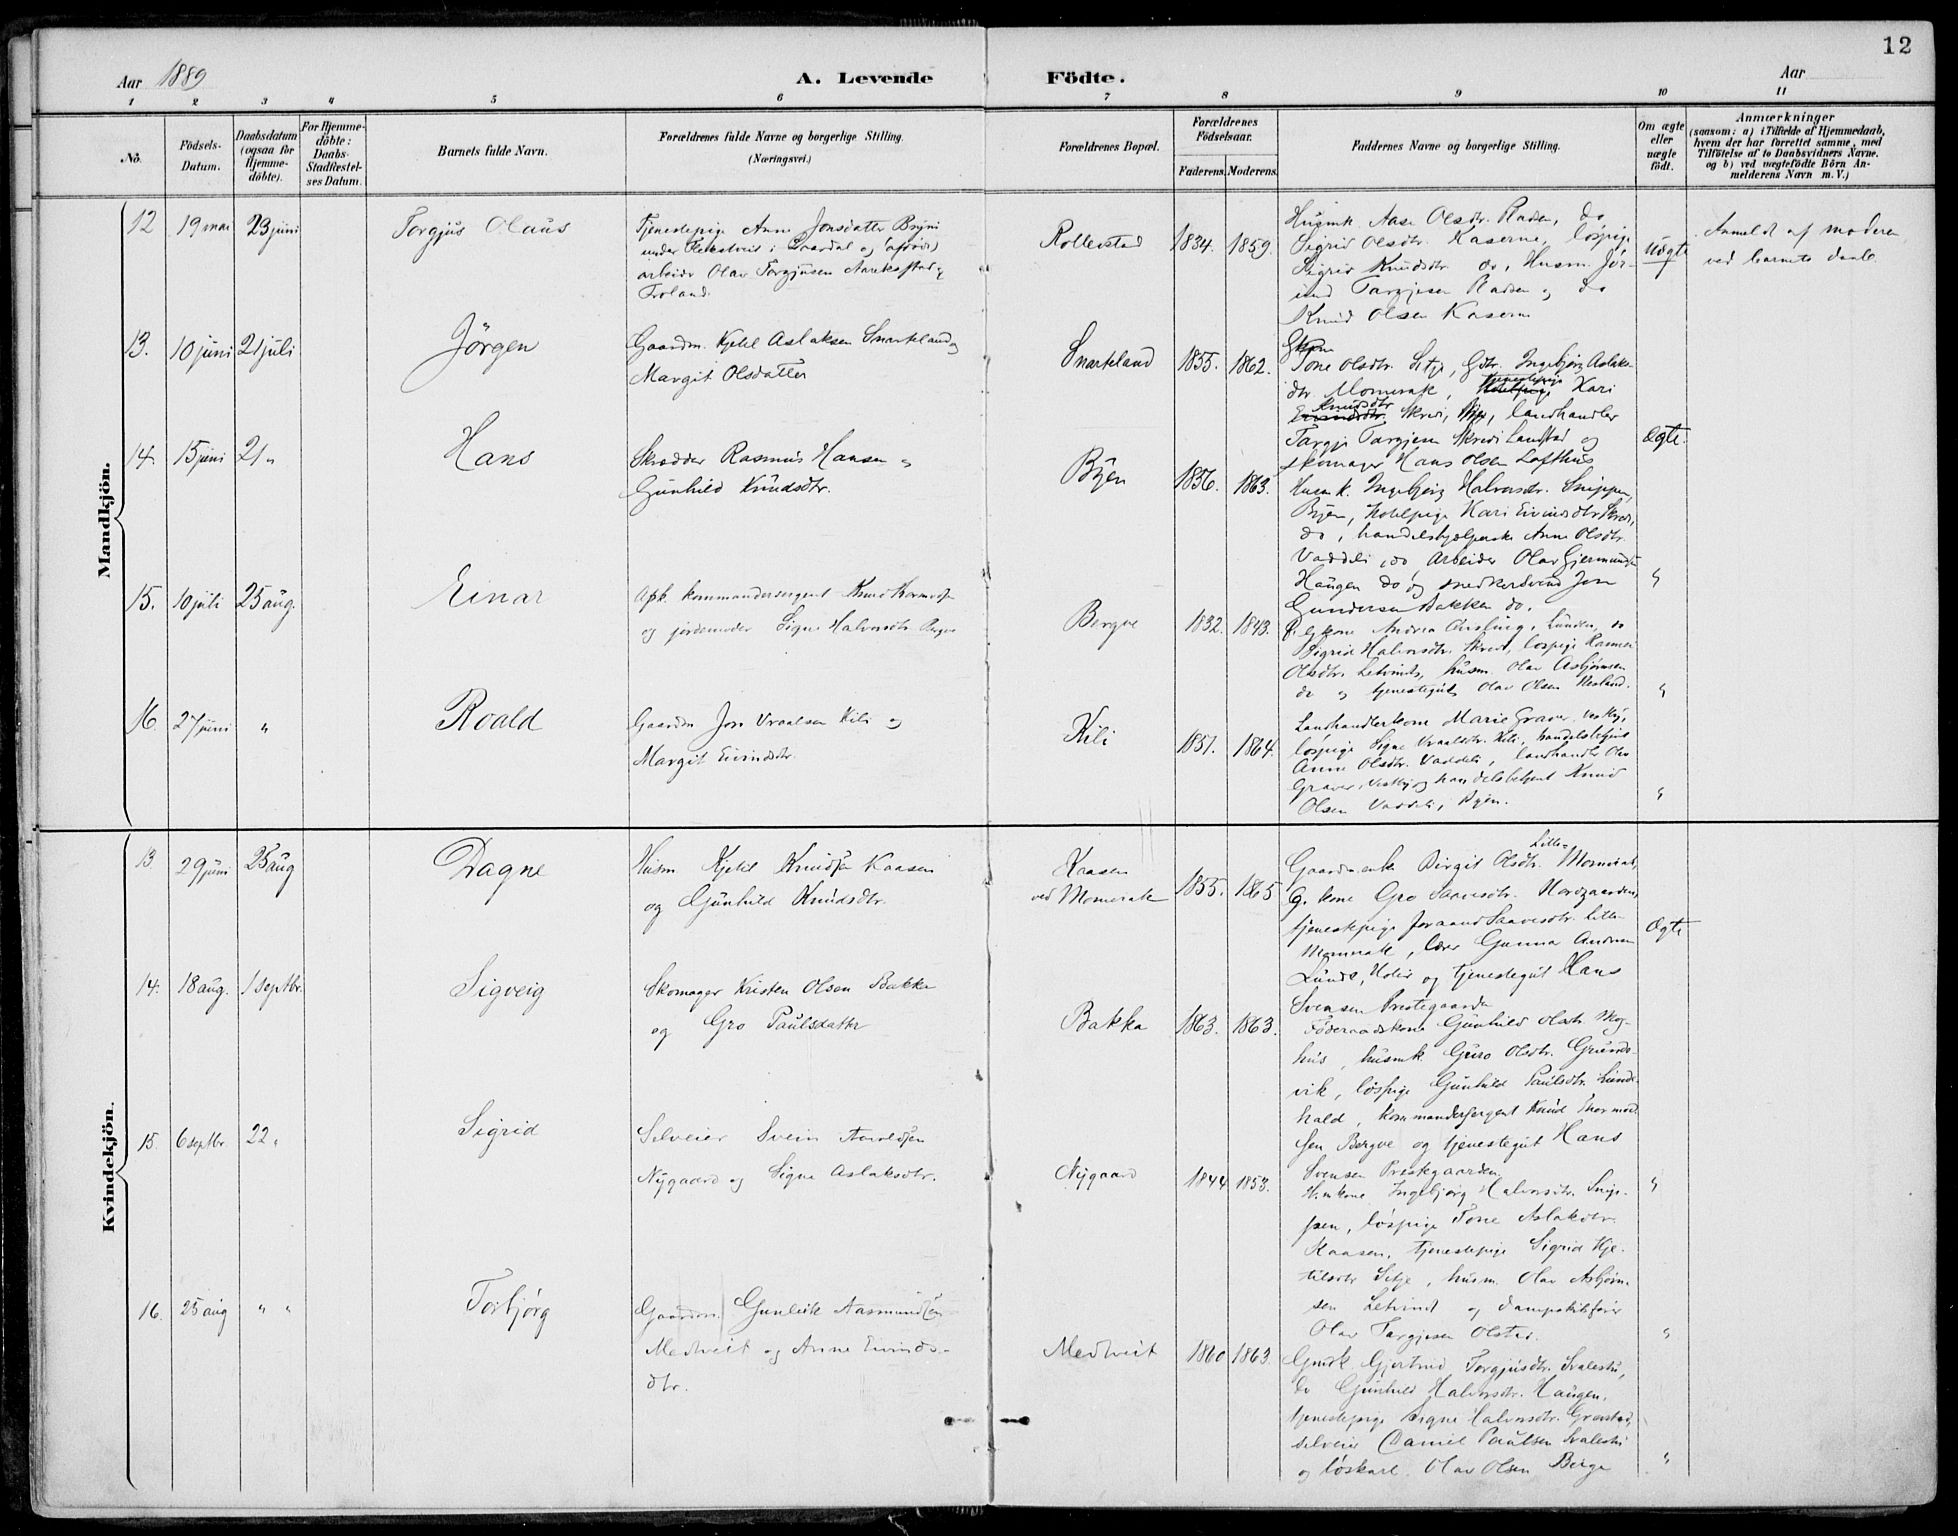 12
Aar 1889
A. Levende Födte.
Aar
1 2 3 4 5 6 7 8 9 10 11
No.
Födsels-Datum.
Daabsdatum (ogsaa for Hjemme-döbte).
For Hjemme-döbte: Daabs-Stadfæstel-ses Datum.
Barnets fulde Navn.
Forældrenes fulde Navne og borgerlige Stilling.
(Næringsvei.)
Forældrenes Bopæl.
Forældrenes Födselsaar.
Faderens. Moderens.
Faddernes Navne og borgerlige Stilling.
Om ægte eller uægte födt.
Anmærkninger
(saasom: a) i Tilfælde af Hjemmedaab,
hvem der har forrettet samme, med
Tilföielse af to Daabsvidners Navne.
og b) ved uægtefödte Börn An-
melderens Navn m. V.)
Mandkjön.
12 19 mai 23 juni Torgjus Olaus
Tjenestepige Anne Jonsdatter Bryni
under i Laardal og
arbeider Olav Torgjusen
Froland.
Rollevstad 1834. 1859.
Husmk. Aase Olsdtr. Raden, do
Sigrid Olsdtr. Kaserne, löspige
Sigrid Knudsdtr. do, Husm. Jör-
und Targjesen Raden og do
Knud Olsen Kasern
Uægte
Anmeldt af moderen
ved barnets daab.
13. 10 juni 21 juli Jörgen
Gaardm. Kjetil Aslaksen Snarteland og
Margit Olsdatter
Snarteland 1855. 1862.
Tone Olsdtr. Sitje, Gdtr. Ingebjörg Aslaks-
dtr. Momrak, tjenestepige Kari
Knudsdtr. Skredi, landhandler
Targje Targjesen Skredi Landstad og
skomager Hans Olsen Lofthus
Ægte.
14. 15 juni 21 " Hans
Skrædder Rasmus Hansen og
Gunhild Knudsdtr.
Byen 1856. 1863.
Husmk. Ingebjörg Halvorsdtr. Snippen,
Byen, hotelpige Kari Eivindsdtr. Skredi,
do, handelshjelperske Anne Olsdtr.
Vaddeli, do Arbeider Olav Gjermunds.
Haugen do og snedkersvend Jon
Gundersen Bakken do.
"
15. 10 juli 25 aug. Einar
Afsk. kommandersergent Knud
og jordemoder Signe Halvorsdtr. Bergve
Bergve 1832. 1843.
Andrea Lunden, do
Sigrid Halvorsdtr. Skredi, löspige Rasmine
Olsdtr. Letvint, husm. Olav Asbjörnsen
do og tjenestegut Olav Olsen Nesland.
"
16. 27 juni " Roald
Gaardm Jon Vraalsen Kili og
Margit Eivindsdtr.
Kili 1857. 1864.
Landhandlerkone Marie Graver, Vestby,
löspige Signe Vraalsdtr. Kili, handelsbetjent
Anne Olsdtr. Vaddeli, landhandler Olav
Graver, Vestby og handelsbetjent Knud
Olsen Vaddeli, Byen.
"
Kvindekjön.
13 29 juni 25 aug Dagne
Husm Kjetil Knudsen Kaasen
og Gunhild Knudsdtr.
Kaasen
ved Momrak 1855. 1865
Gaardmandsk Birgit Olsdtr. Lille-Momrak,
G. kone Gro Saavesdtr. Nordgaarden,
tjenestepige Joraand Saavesdtr. Lille-
Momrak, lærer Gunnar Andersen
Lunde, og tjenestegut Hans
Svensen Prestegaarden
Ægte
14. 18 aug. 1 septbr. Sigveig
Skomager Kristen Olsen Bakka
og Gro Paulsdatter
Bakka 1863. 1863.
Föderaadskone Gunhild Olsdtr. Mog-
hus, husmk. Guro Olsdtr. Grunds-
vik, löspige Gunhild Paulsdtr. Lunde-
hald, kommandersergent Knud Thormod-
sen Bergve og tjenestegut Hans
Svensen Prestegaarden
"
15. 6 septbr. 22 " Sigrid
Selveier Svein
Nygaard og Signe Aslaksdtr.
Nygaard 1844 1853.
H.mkone Ingebjörg Halvorsdtr. Snip-
pen, löspige Tone Aslaksdtr.
Kaasen, tjenestepige Sigrid Kje-
tilsdtr Sitje, husm. Olav Asbjörn-
sen Letvint og dampskibsförer
Olav Targjesen Olstad.
"
16. 25 aug " " Torbjörg
Gaardm. Gunleik Aasmundsen
Medtveit og Anne Eivinds-
dtr.
Medtveit 1860 1863.
Gmdk Gjertrud Torgjusdtr. Svalestu,
do Gunhild Halvorsdtr. Haugen,
tjenestepige Signe Halvorsdtr. Gravstad,
selveier Daniel Paulsen Svalestu
og löskarl Olav Olsen Berge
"